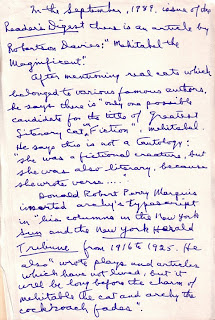 In the September, 1989, issue of the
Reader's Digest there is an article by
Robertson Davies; "Mehitabel the
Magnificent"
After mentioning real cats which
belonged to various famous authors,
he says there is "only one possible
candidate for the title of 'Greatest
Literary Cat, Fiction'", mehitabel.
He says this is not a tautology:
"she was a fictional creature, but
she was also literary, because
she wrote verse...."
Donald Robert Perry Marquis
inserted archy's typescript
in "his columns in the New York
Sun and the New York Herald
Tribune from 1916 to 1925. He
also" wrote plays and articles
which have not lived, but it
will be long before the charm of
mehitabel the cat and archy the
cockroach fades".